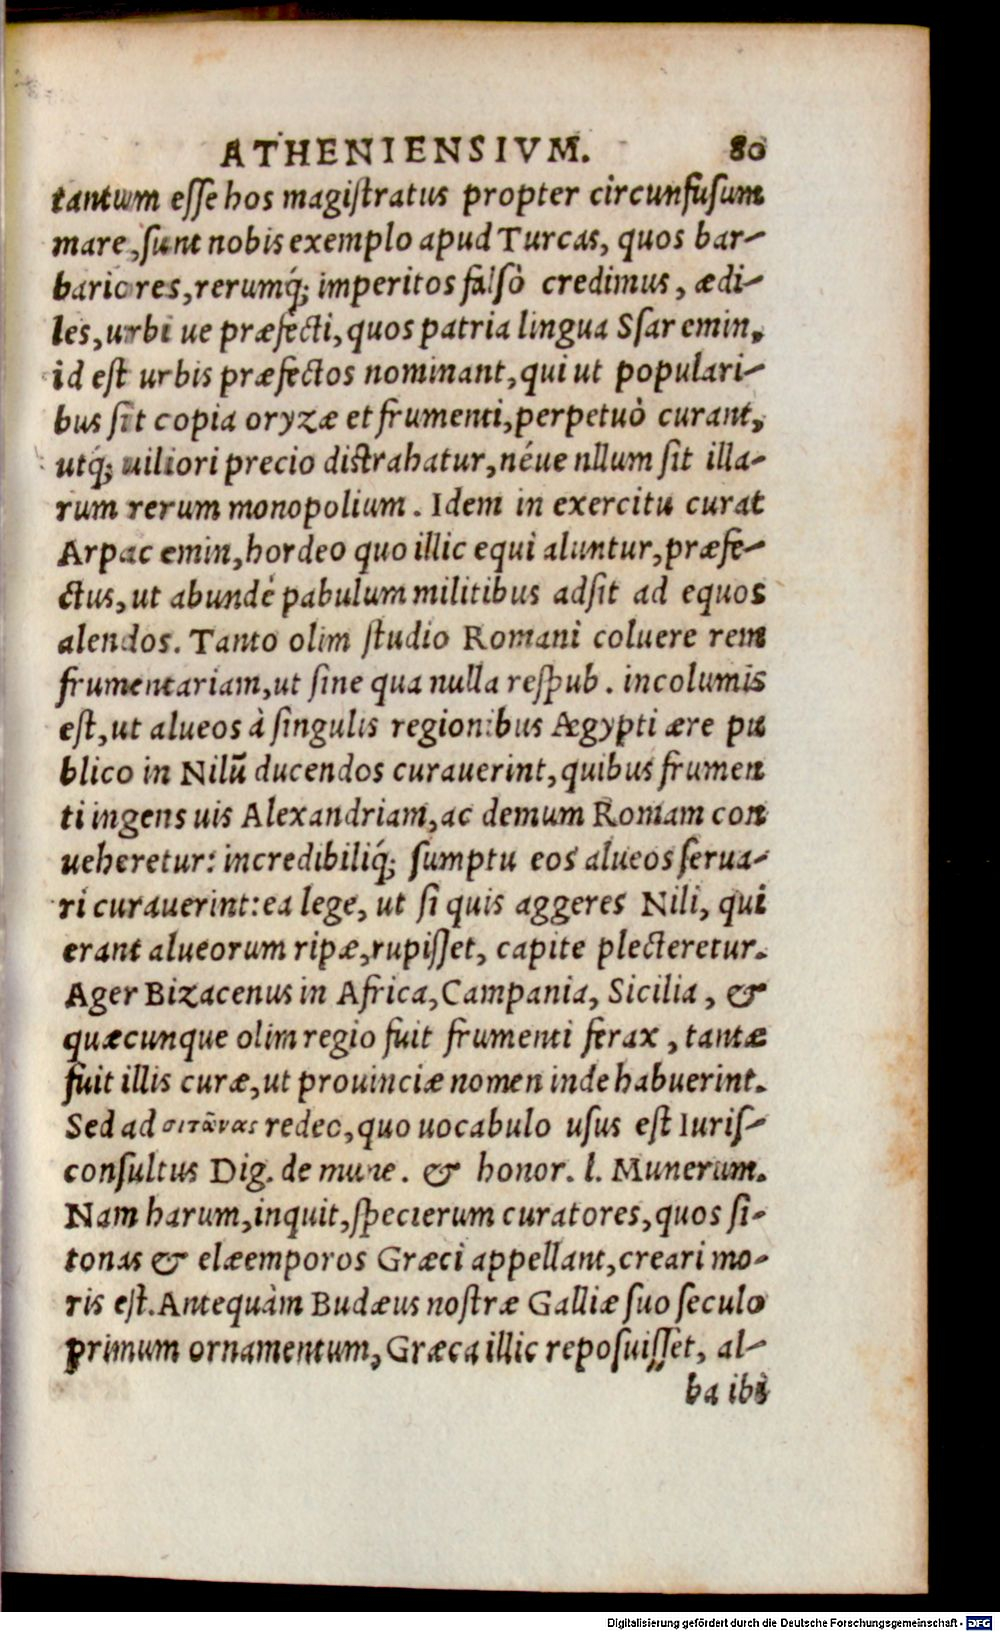 ATHENIENSIVM. 80
tantum eſſe hos magiſtratus propter circunfuſum
mare, ſunt nobis exemplo apud Turcas, quos bar-
bariores, rerumq́; imperitos falſò credimus, ædi-
les, urbi ue præfecti, quos patria lingua Sſar emin,
id eſt urbis præfectos nominant, qui ut populari-
bus ſit copia oryzæ et frumenti, perpetuò curant,
utq́; uiliori precio diſtrahatur, néue nllum ſit illa-
rum rerum monopolium. Idem in exercitu curat
Arpac emin, hordeo quo illic equi aluntur, præfe-
ctus, ut abundè pabulum militibus adſit ad equos
alendos. Tanto olim ſtudio Romani coluere rem
frumentariam, ut ſine qua nulla reſpub. incolumis
eſt, ut alueos à ſingulis regionibus Ægypti ære pu
blico in Nilũ ducendos curauerint, quibus frumen
ti ingens uis Alexandriam, ac demum Romam con
ueheretur: incredibiliq́; ſumptu eos alueos ſerua-
ri curauerint: ea lege, ut ſi quis aggeres Nili, qui
erant alueorum ripæ, rupiſſet, capite plecteretur.
Ager Bizacenus in Africa, Campania, Sicilia, &
quæcunque olim regio fuit frumenti ferax, tantæ
fuit illis curæ, ut prouinciæ nomen inde habuerint.
Sed ad σιτῶνας redeo, quo uocabulo uſus eſt Iuriſ-
conſultus Dig. de mune. & honor. l. Munerum.
Nam harum, inquit, ſpecierum curatores, quos ſi-
tonas & elæemporos Græci appellant, creari mo-
ris eſt. Antequàm Budæus noſtræ Galliæ ſuo ſeculo
primum ornamentum, Græca illic repoſuiſſet, al-
ba ibi
Digitalisierung gefördert durch die Deutsche Forschungsgemeinschaft - DFG